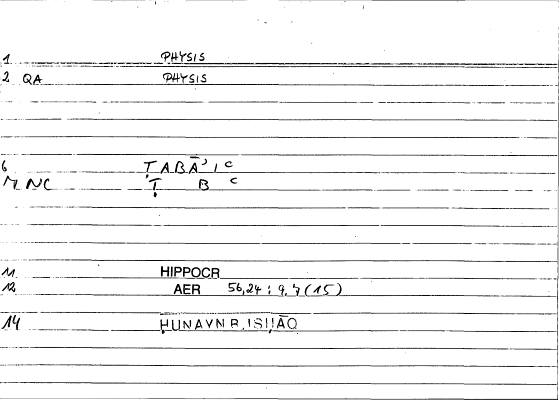 1 PHYSIS
2 QA PHYSIS
6 ṬABĀʾIᶜ
NC Ṭ B ᶜ
11 HIPPOCR
12 AER 56,24 : 9,7 (15)
14 ḤUNAYN B. ISḤĀQ